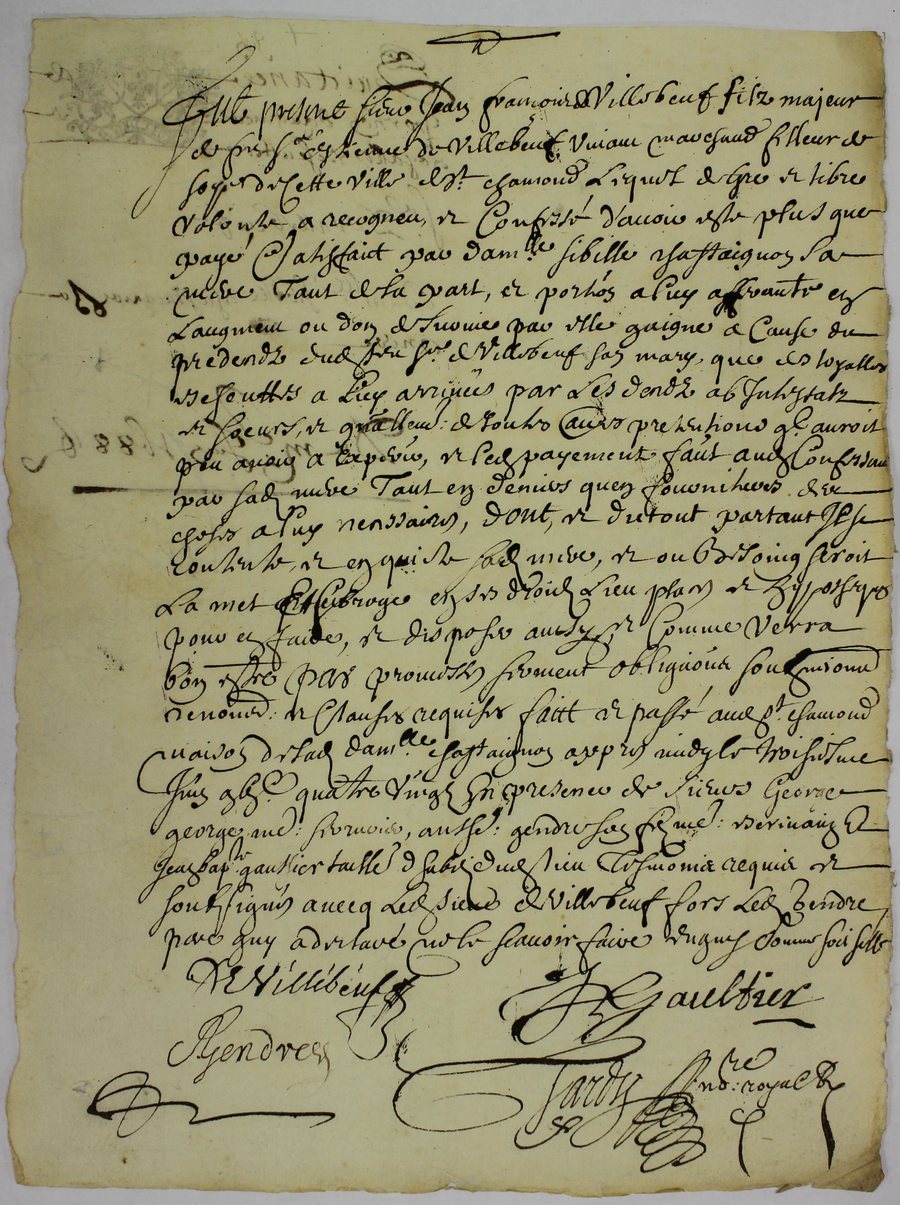 Fut present sieur Jean François de Villebeuf filz majeur
de feu Sr Estienne de Villebeuf vivant marchand filleur de
soye de cette ville de St chamond Lequel de gre et libre
volonte a recogneu, et Confessé d'avoir esté plus que
payé Satisfait par damlle sibille chastaignon sa
mere Tant de la part, et portion a luy afferante en
Laugment ou don de survie par elle gaigné a Cause du
predeceds dud feu Sr de Villebeuf son mary, que des
escheuttes a luy arrivées par Les decedz ab Intestatz
et soeurs, et generallemt de toutes autres pretentions ql auroit
peu avoir a, et led payement fait aud Confessant
par sad mere Tant en deniers quen fournitures de
choses a luy necessaires, dont, et du tout partant Il se
contente, et en quitte sad mere, et ou besoing seroit
La met et subroge en ses droits Lieu place et hypotheque
pour en faire, et disposer ainsy, et Comme verra
bon estre par promesses serment obligations soubmissions
renonc: et Clauses requises faitt et passé aud St chamond
maison de lad damlle chastaignon apres midy le troisiesme
quatre vingt en presence de sieurs George
george me:, anthe: gendre son et
Jean bapte gaultier taillr d'habitz dud lieu Tesmoins requis et
soubsignés avecq Led sieur de Villebeuf fors Led Gendre
pere quy a declaré ne le scavoir faire enquis Comme
De Villebeuf
Gaultier
AGendre
Tardy nore royal